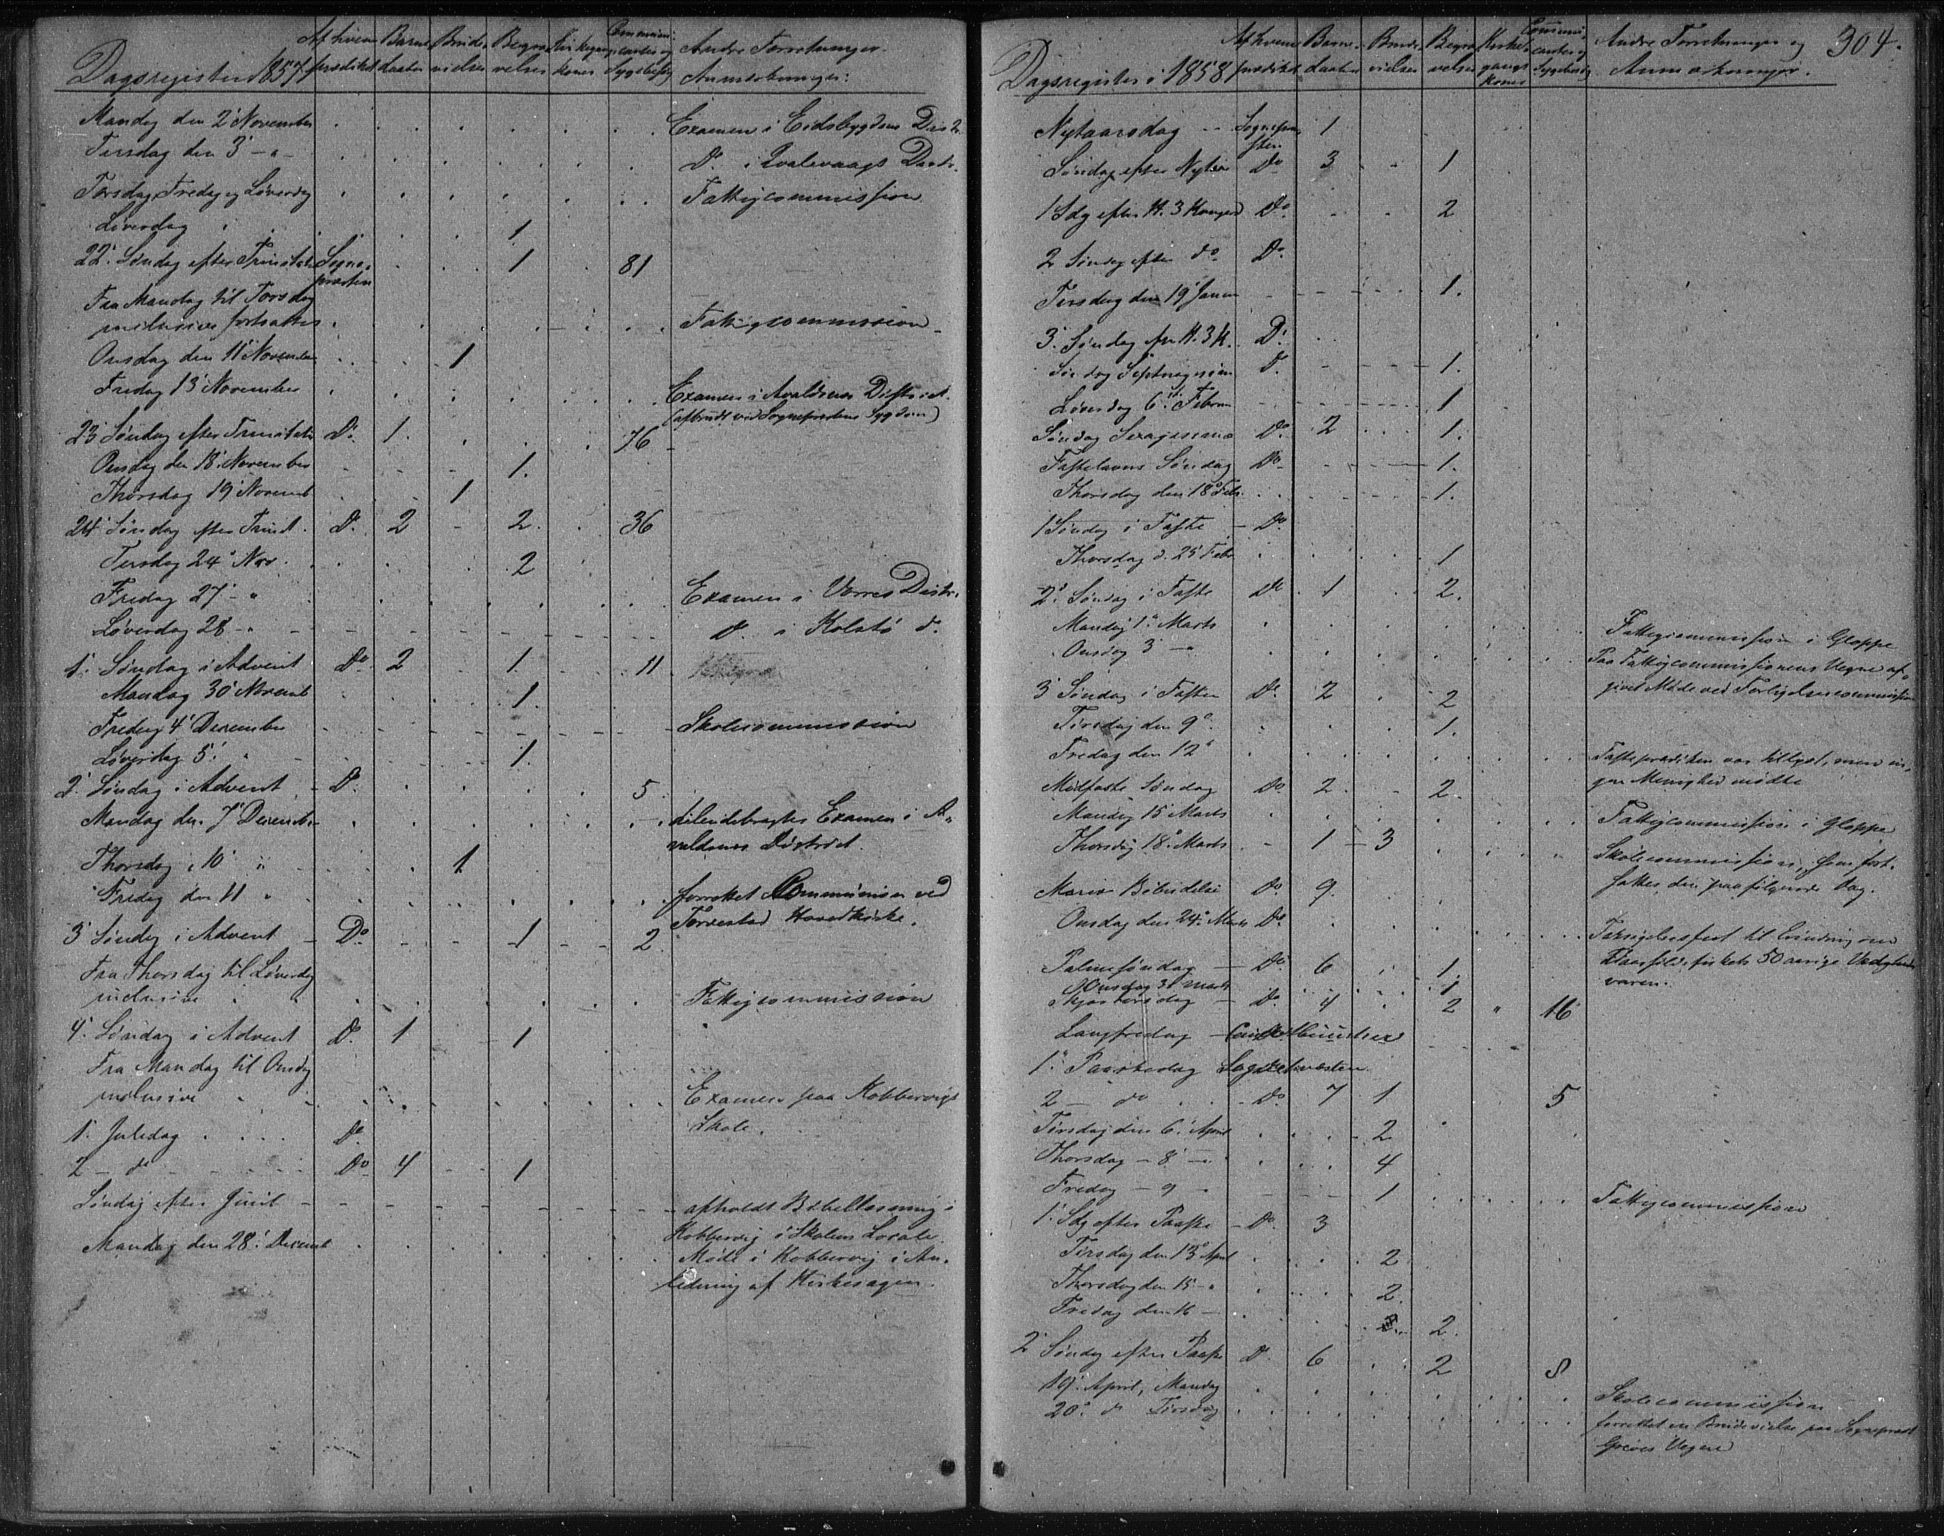 Dagsregister 1857
Af hvem prædiket
Barne daaben
Brude vielser
Begravelser
Kirkegangskoner
Communicanter og Sygebesøg
Andre Forretninger. Anmærkninger:
Mandag den 2' November . . . . . . Examen i Eidsbygdens Distr.
Tirsdag den 3' - " - . . . . . . do. i Qvalevaags Distr.
Torsdag, Fredag og Løverdag . . . . . . Fattigcommission
Løverdag 1
22' Søndag efter Trinitatis Sognepræsten 1 81
Fra Mandag til Torsdag
inclusive fortsattes . . . . . . Fattigcommission
Onsdag den 11' November 1
Fredag 13' November . . . . . . Examen i Avaldsnes District.
(afbrudt ved Sognepræstens Sygdom)
23' Søndag efter Trinitatis Do. 1. 76
Onsdag den 18' November 1.
Thorsdag 19' Novemb 1
24' Søndag efter Trinit. Do. 2 - 2. 36
Tirsdag 24' Nov. 2
Fredag 27' - " . . . . . . Examen i Vorres Distr.
Løverdag 28 - " - - - - - - do. i Kolstø do.
1' Søndag i Advent Do 2 1. 11
Mandag 30' Novemb 1.
Fredag 4' December Skolecommission
Løverdag 5' 1.
2' Søndag i Advent Do. 5
Mandag den 7' Decemb. . . . . . . tilendebragtes Examen i A-
valdsnes District.
Thorsdag 10' " 1
Fredag den 11 " . . . . . . forrettet Communion ved
Torvestad Hovedkirke.
3' Søndag i Advent Do. 1 2
Fra Thorsdag til Løverdag
inclusive . . . . . . Fattigcommission
4' Søndag i Advent Do. 1 1
Fra Mandag til Onsdag
inclusive . . . . . . Examen paa Kobbervigs
Skole.
1' Juledag Do.
2 - do - Do 4 1
Søndag efter Juul - - - - - - afholdt Bibellæsning i
Kobbervig i Skolens Locale.
Mandag den 28' Decemb . . . . . . Møde i Kobbervig i An-
ledning af Kirkesagen.
304.
Dagsregister i 1858
Af hvem prædiket
Barne daaben
Brude vielser
Begravelser
Kirkegangs Koner
Communicanter og Sygebesøg
Andre Forretninger og Anmærkninger.
Nytaarsdag Sognepræsten 1
Søndag efter Nytaar Do 3 - - 1
1 Sdg efter H. 3 Konger Do. 2
2 Søndag efter do. Do.
Tirsdag den 19' Januar 1.
3' Søndag efter H. 3 K. Do.
Søndag Septuagesima Do. 1.
Løverdag 6' Februar 1
Søndag Sexagesima Do. 2 1.
Fastelavns Søndag Do. 1.
Thorsdag den 18' Feb. 1.
1 Søndag i Faste - Do.
Thorsdag d. 25' Febr. 1
2' Søndag i Faste Do 1 2.
Mandag 1' Marts Fattigcommission i Gloppe
Onsdag 3 - " Paa Fattigcommissionens Vegne af-
givet Møde ved Forligelsescommission
3' Søndag i Fasten Do. 2 . 2
Tirsdag den 9' 1.
Fredag den 12' Fasteprædiken var tillyst, men in-
gen Menighed mødte
Midfaste Søndag Do. 2. 2.
Mandag 15' Marts Fattigcommission i Gloppe
Thorsdag 18' Marts - 1 - 3 Skolecommission, som fort-
sattes den paafølgende Dag.
Mariæ Bebudelse Do. 9
Onsdag den 24' Marts Do.
Palmesøndag Do. 6 1.
Onsdag 31 Marts 1
Skjærtorsdag Do. 4 2 " 16
Langfredag
1' Paaskedag Sognepræsten
2 - do - Do. 7 1 5
Tirsdag den 6' April 2
Thorsdag - 8' - 4
Fredag - 9 - 1 Fattigcommission
1' Sdg efter Paaske - Do. 3
Tirsdag den 13' April 2
Thorsdag den 15 - " 2.
Fredag den 16 - 2.
2' Søndag efter Paaske Do. 6 2 8
19' April, Mandag Skolecommission
20' do Tirsdag forrettet en Brudevielse paa Sognepræst
Greves Vegne